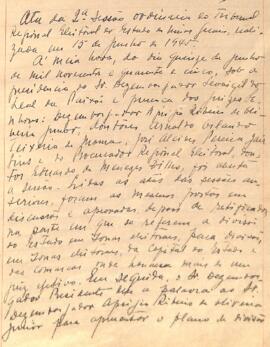 Ata da 2ª Sessão ordinária do Tribunal
Regional Eleitoral do Estado de Minas Gerais, reali-
zada em 15 de Junho de 1945.
A meia hora, do dia quinze de junho
de mil novecentos e quarenta e cinco, sob a
presidencia do Sr. Desembargador
Leal da Paixão e presença dos juizes Se-
nhores: Desembargador Aprigio Ribeiro de Oli-
veira Junior, doutores Arnaldo
Teixeira de, José Alcides Pereira
e do Procurador Regional Eleitoral, Dou-
tor Eduardo de Menezes Filho, foi aberta
a sessão. Lidas as atas das sessões an-
teriores, foram as mesmas postas em
discussão e aprovadas, depois de retificadas
na parte em que se referem a divisão
do Estado em zonas eleitorais, para divisão,
em zonas eleitorais, da Capital do Estado e
das comarcas onde houver mais de um
juiz efetivo. Em seguida, o Sr. Desembar-
gador Presidente deu a palavra ao Sr.
Desembargador Aprigio Ribeiro de Oliveira
Junior para apresentar o plano de divisão